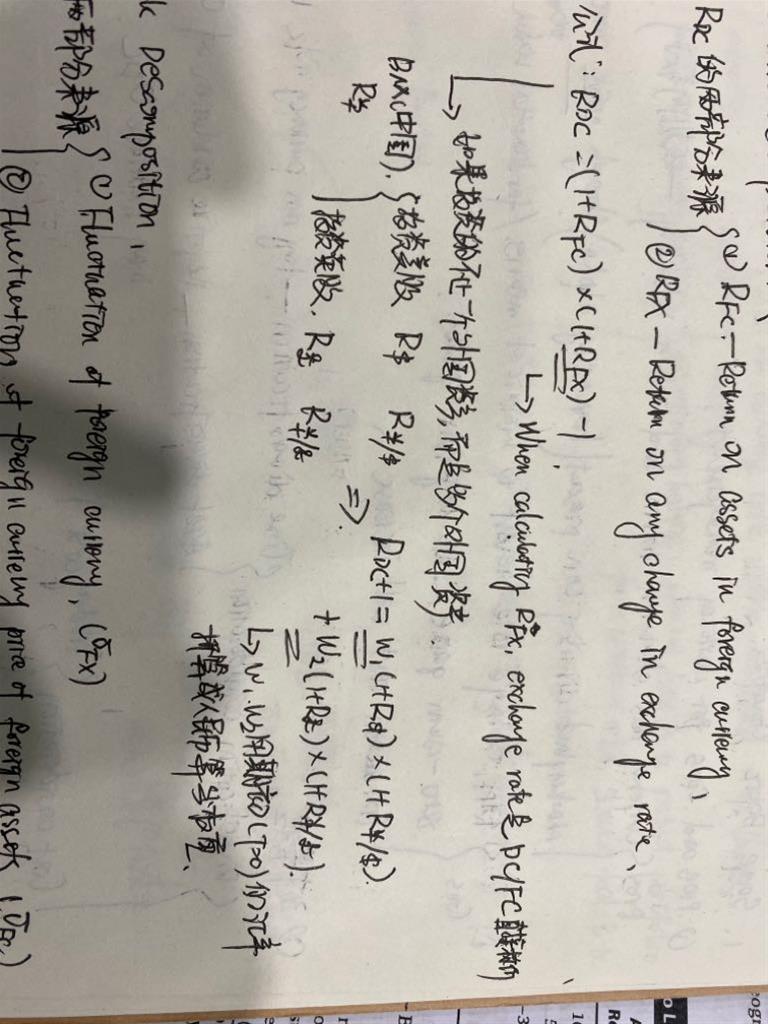 RDC 的两部分来源 { ① RFC — Return on assets in foreign currency,
② RFX — Return on any change in exchange rate,
公式: RDC = (1+RFC) × (1+RFX) - 1,
↳ When calculating RFX, exchange rate是 DC/FC
↳ 如果投资的不止一个外国资产, 而是多个外国资产.
DM(中国). { 投资美股 R$ R¥/$
R¥
投资英股. R£ R¥/£
⇒ RDC+1 = W1(1+R$) × (1+R¥/$)
+ W2(1+R£) × (1+R¥/£).
↳ W1. W2用期初(T=0)的汇率
折算成人民币算
k Descomposition,
两部分来源 { ① Fluctuation of foreign currency, (σFX)
② Fluctuation of foreign currency price of foreign assets (σFC)